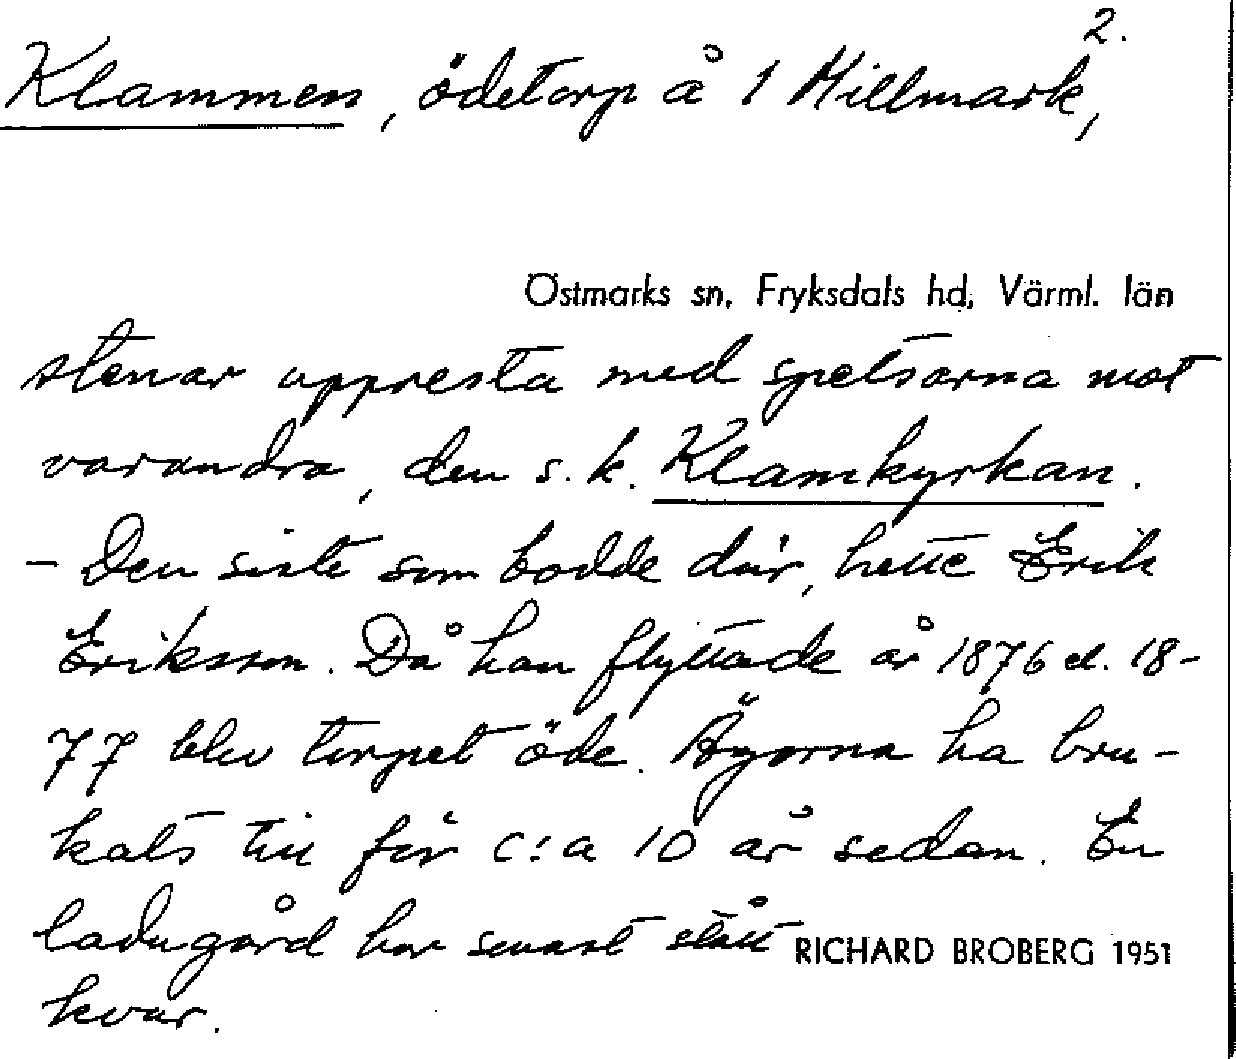 2.
Klammen, ödetorp å 1 Millmark,
Östmarks sn, Fryksdals hd, Värml. län
stenar uppresta med spetsarna mot
varandra, den s.k. Klamkyrkan.
- Den siste som bodde där, hette Erik
Eriksson. Då han flyttade år 1876 el. 18-
77 blev torpet öde. Ägorna ha bru-
kats till för c:a 10 år sedan. En
ladugård har senast stått
RICHARD BROBERG 1951
kvar.